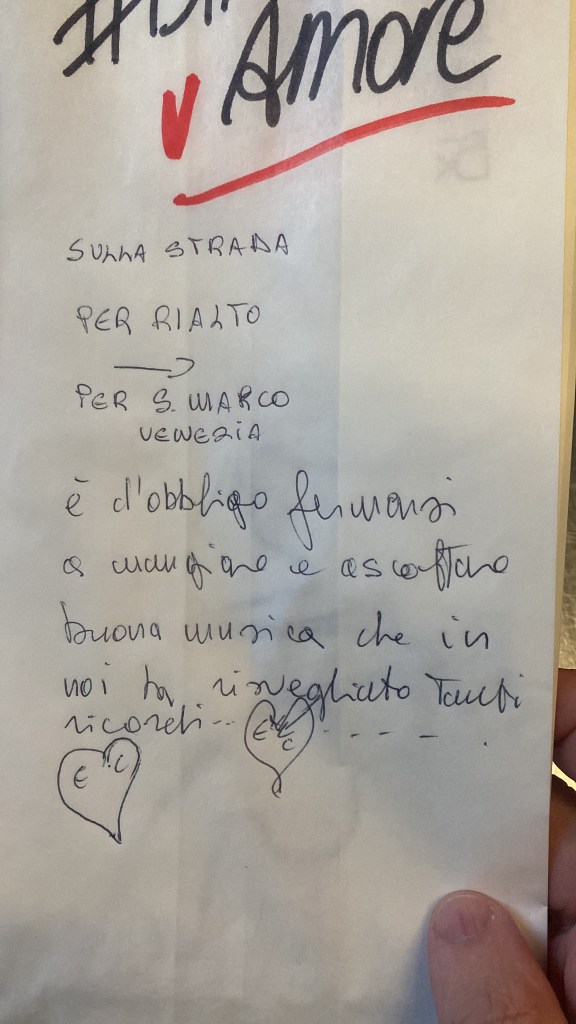 Amore
SULLA STRADA
PER RIALTO
PER S. MARCO
VENEZIA
è d'obbligo fermarsi
a mangiare e ascoltare
buona musica che in
noi ha risvegliato tanti
ricordi...
E C
E C